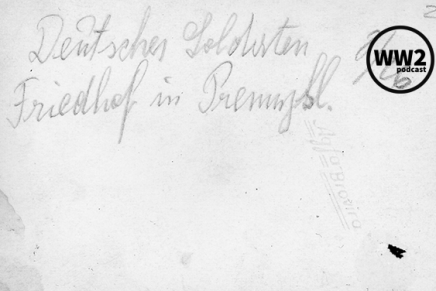 Deutscher Soldaten
Friedhof in Premysl.
WW2
podcast